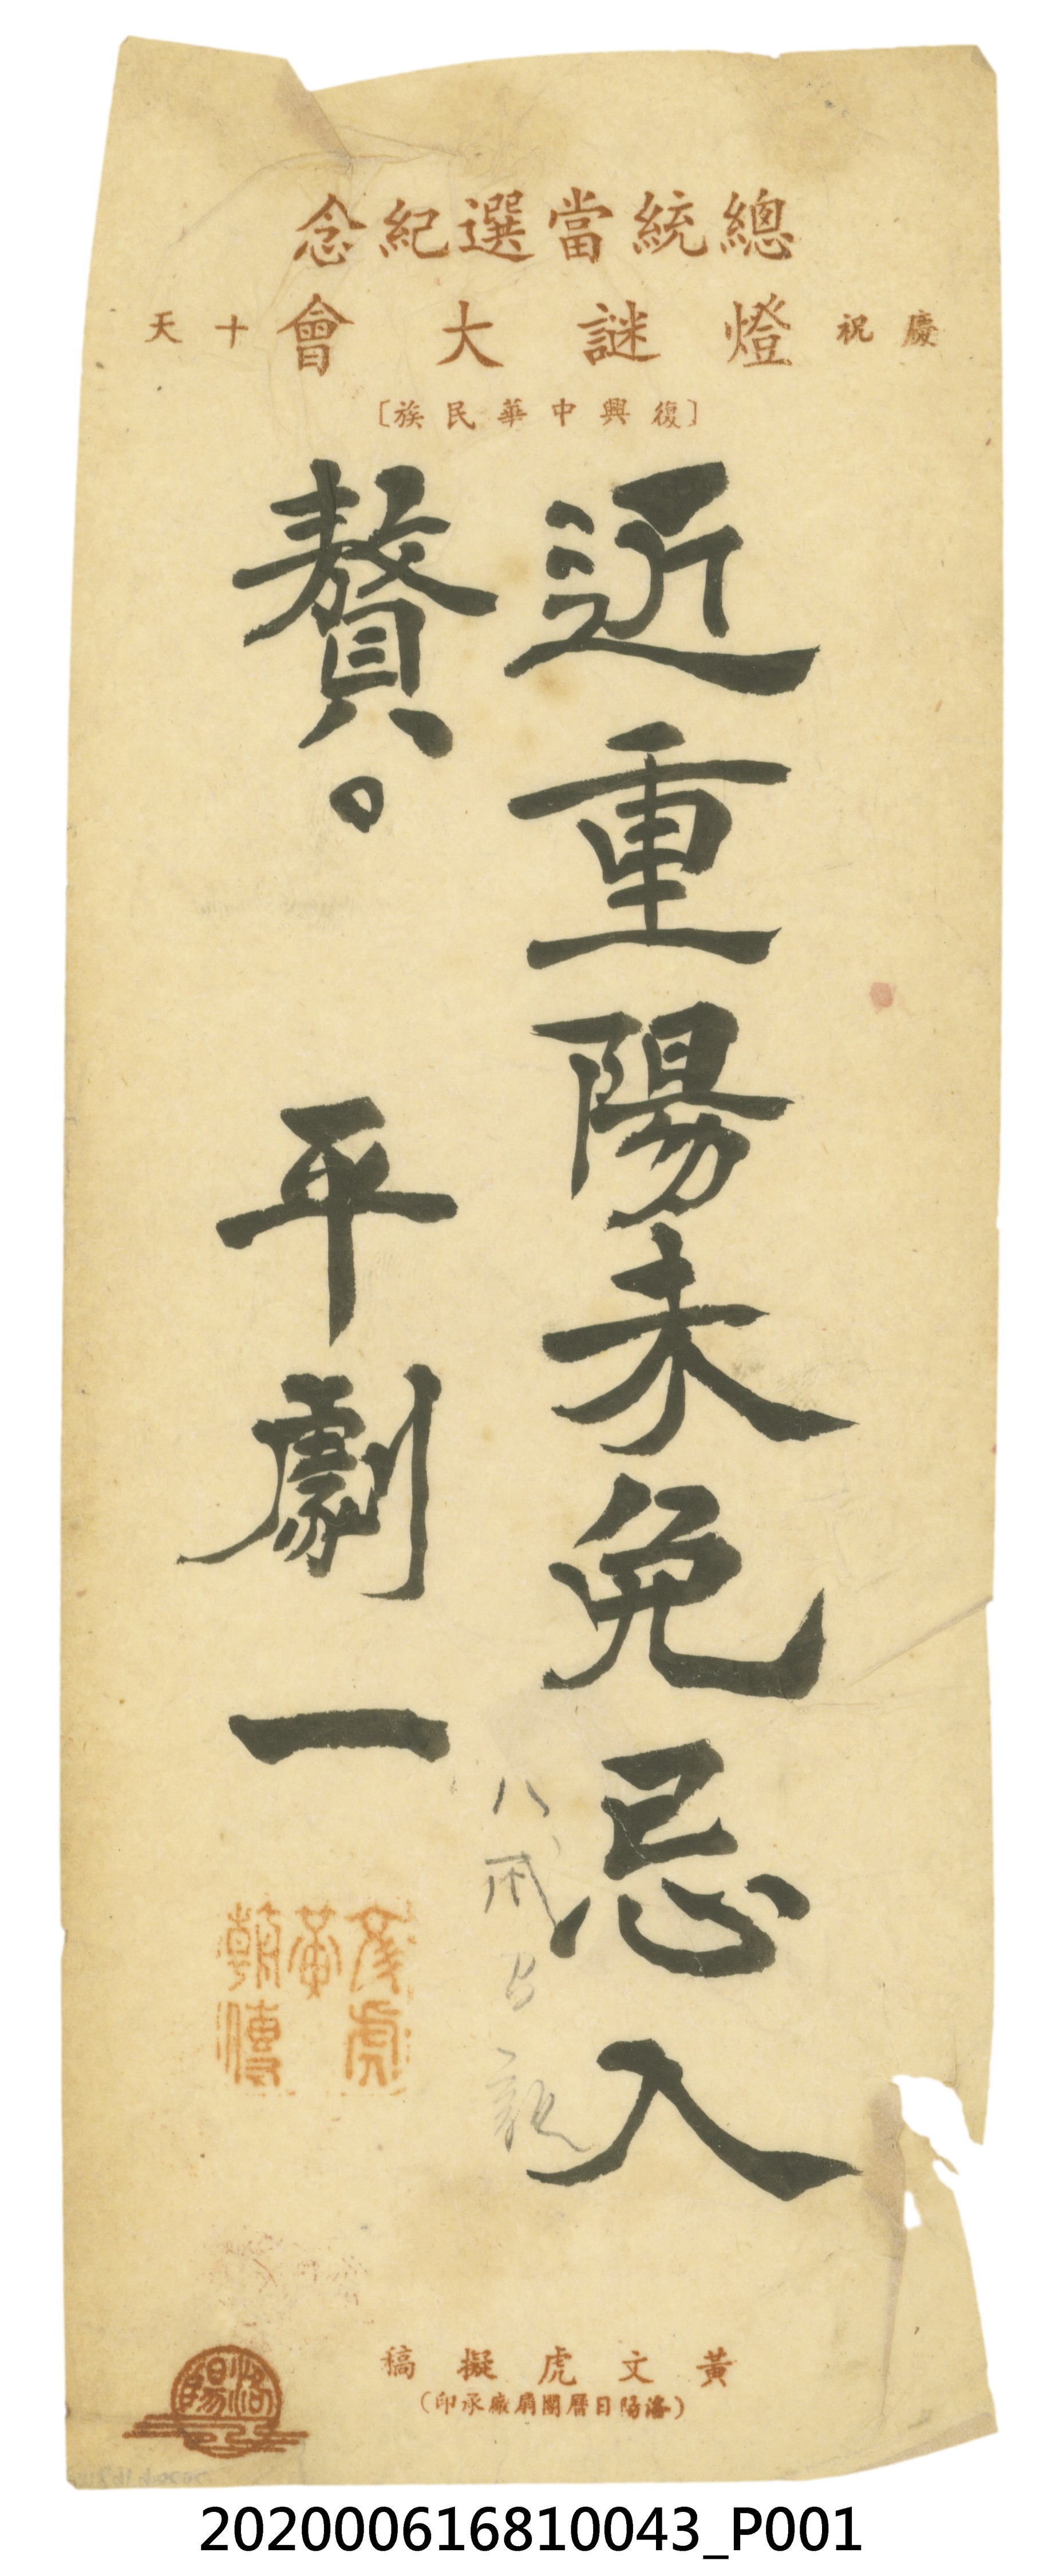 總統當選紀念
慶祝 燈謎大會 十天
〔復興中華民族〕
近重陽未免忌入
贅。 平劇一
虎
黃
朝傳
黃文虎擬稿
(洛陽日曆團扇廠承印)
洛陽
202000616810043_P001